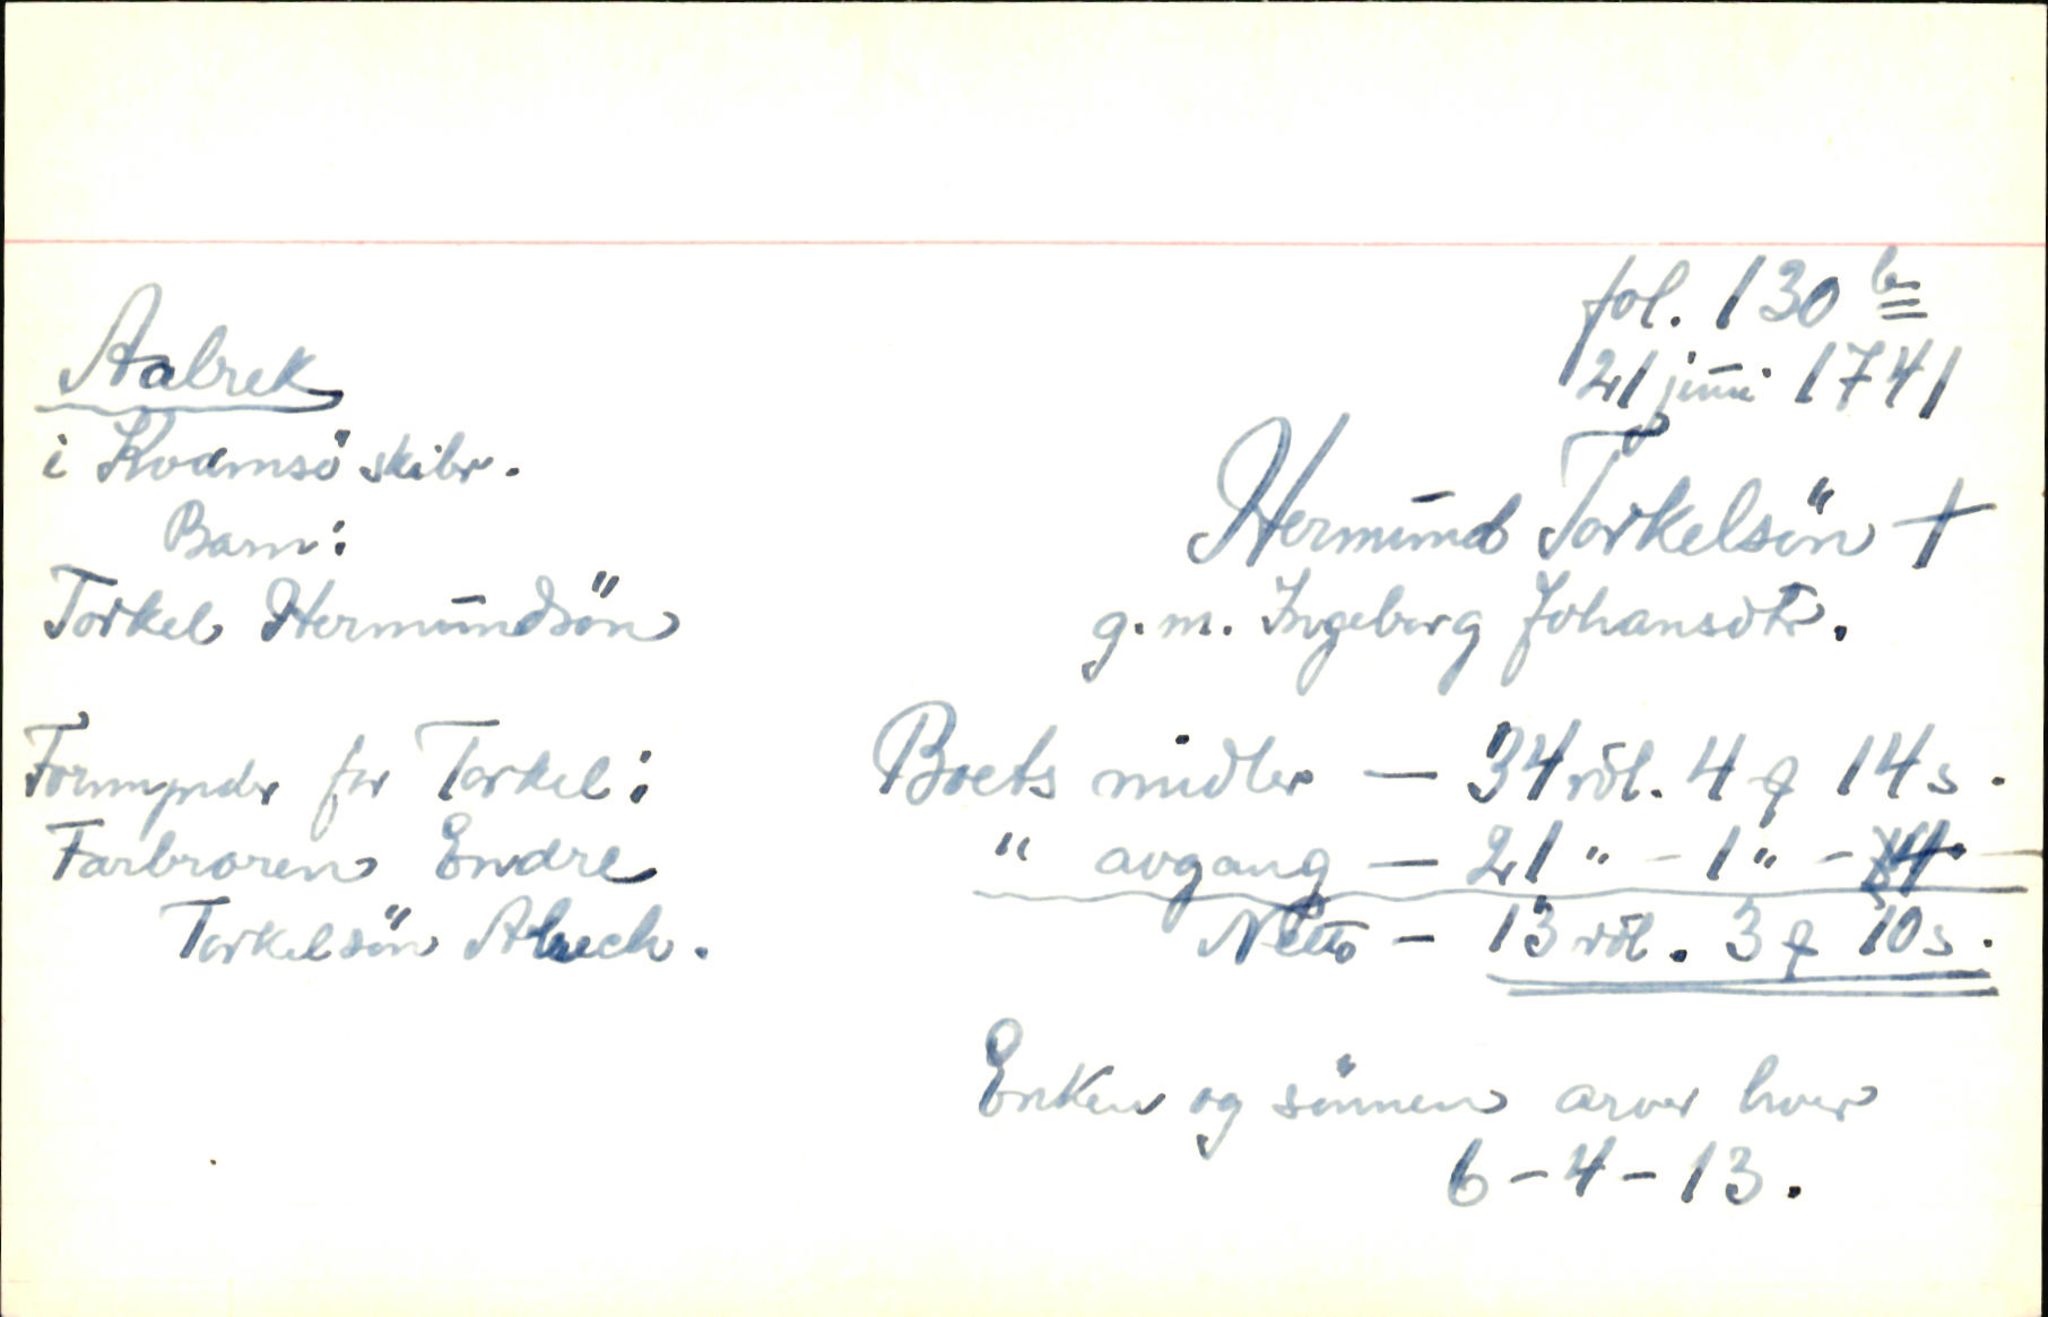 fol. 130 b
21 juni 1741
Aalrek
i Kvamsö skibr.
Barn:
Torkel Hermundsön
Formynder for Torkel:
Farbroren Endre
Torkelsön Alrech.
Hermund Torkelsön †
g. m. Ingeborg Johansdtr.
Boets midler — 34 rdl. 4 ƒ 14 s.
" avgang — 21 " - 1 " -
Netto - 13 rdl. 3 ƒ 10 s.
Enken og sönnen arver hver
6 - 4 - 13.